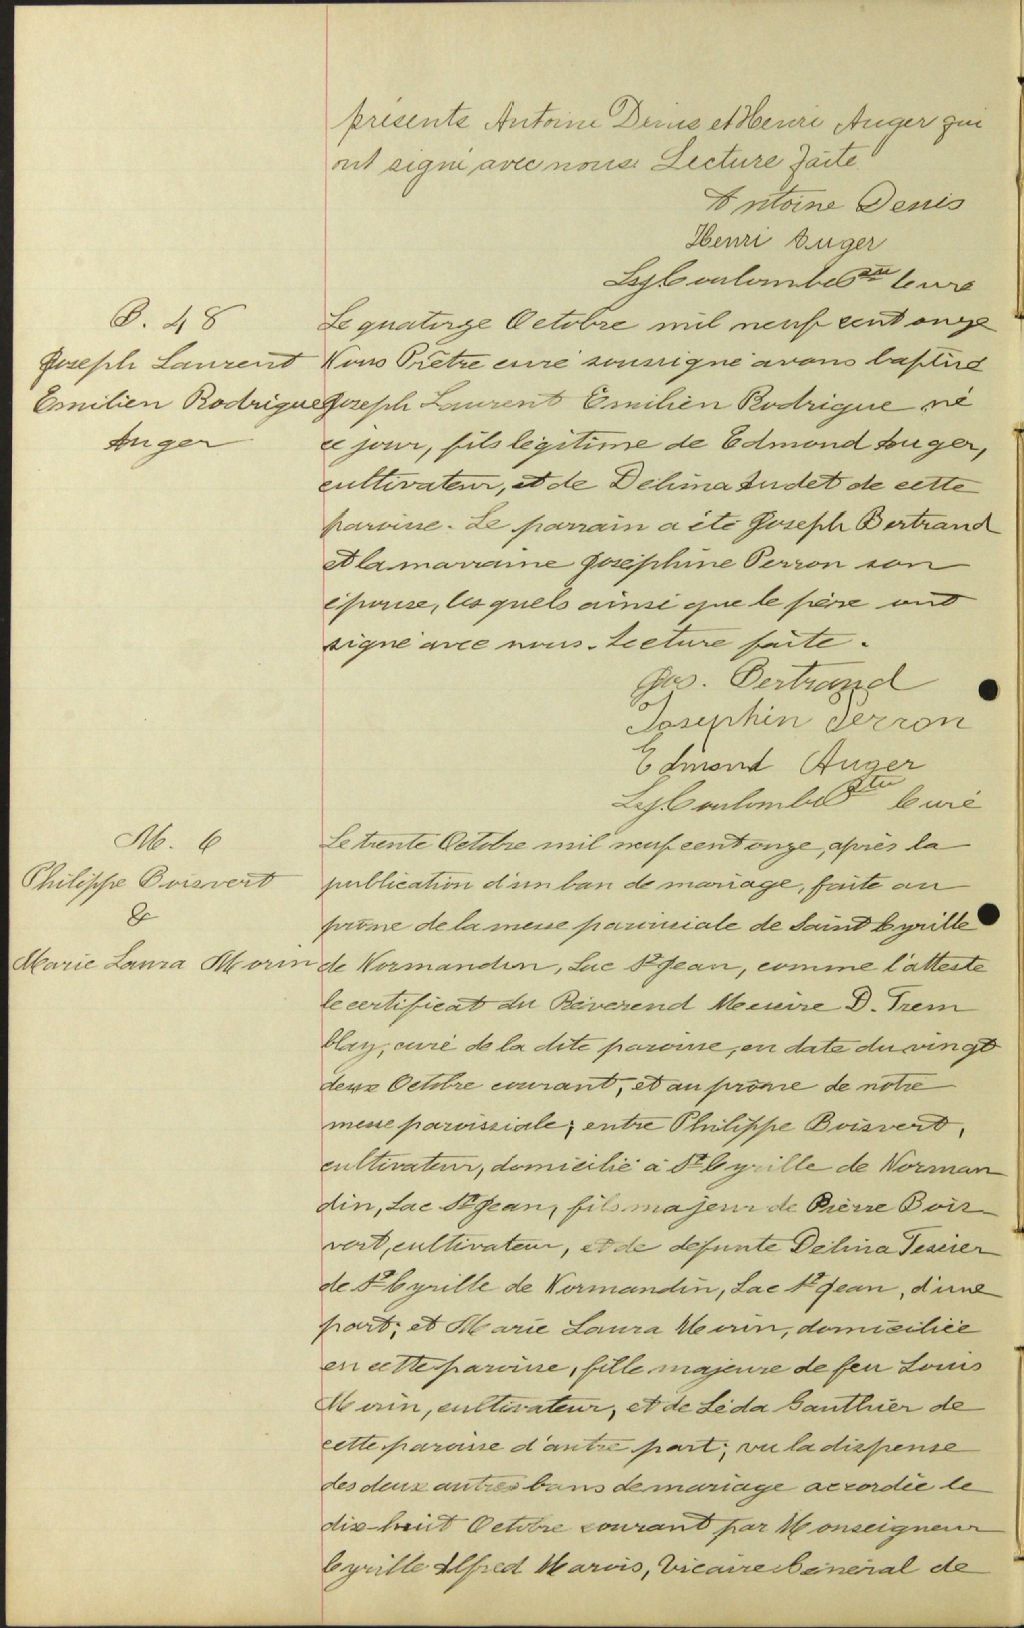 présents Antoine Denis et Henri Auger qui
ont signé avec nous. Lecture faite
Antoine Denis
Henri Auger
Coulombe Ptre Curé
B. 48
Joseph Laurent
Emilien Rodrigue
Auger
Le quatorze Octobre mil neuf cent onze
Nous Prêtre curé soussigné avons baptisé
Joseph Laurent Emilien Rodrigue né
ce jour, fils légitime de Edmond Auger,
cultivateur, et de Délima Audet de cette
paroisse. Le parrain a été Joseph Bertrand
et la marraine Joséphine Perron son
épouse, lesquels ainsi que le père ont
signé avec nous. Lecture faite.
Jos. Bertrand
Josephin Perron
Edmond Auger
Coulombe Ptre Curé
M. 6
Philippe Boisvert
&
Marie Laura Morin
Le trente Octobre mil neuf cent onze, après la
publication d'un ban de mariage, faite au
prône de la messe paroissiale de Saint Cyrille
de Normandin, Lac St Jean, comme l'atteste
le certificat du Révérend Messire D. Trem
blay, curé de la dite paroisse, en date du vingt
deux Octobre courant, et au prône de notre
messe paroissiale; entre Philippe Boisvert,
cultivateur, domicilié à St Cyrille de Norman
din, Lac St Jean, fils majeur de Pierre Bois-
vert, cultivateur, et de défunte Délina Tessier
de St Cyrille de Normandin, Lac St Jean, d'une
part; et Marie Laura Morin, domiciliée
en cette paroisse, fille majeure de feu Louis
Morin, cultivateur, et de Léda Gauthier de
cette paroisse d'autre part; vu la dispense
des deux autres bans de mariage accordée le
dix-huit Octobre courant par Monseigneur
Cyrille Alfred Marois, Vicaire Général de